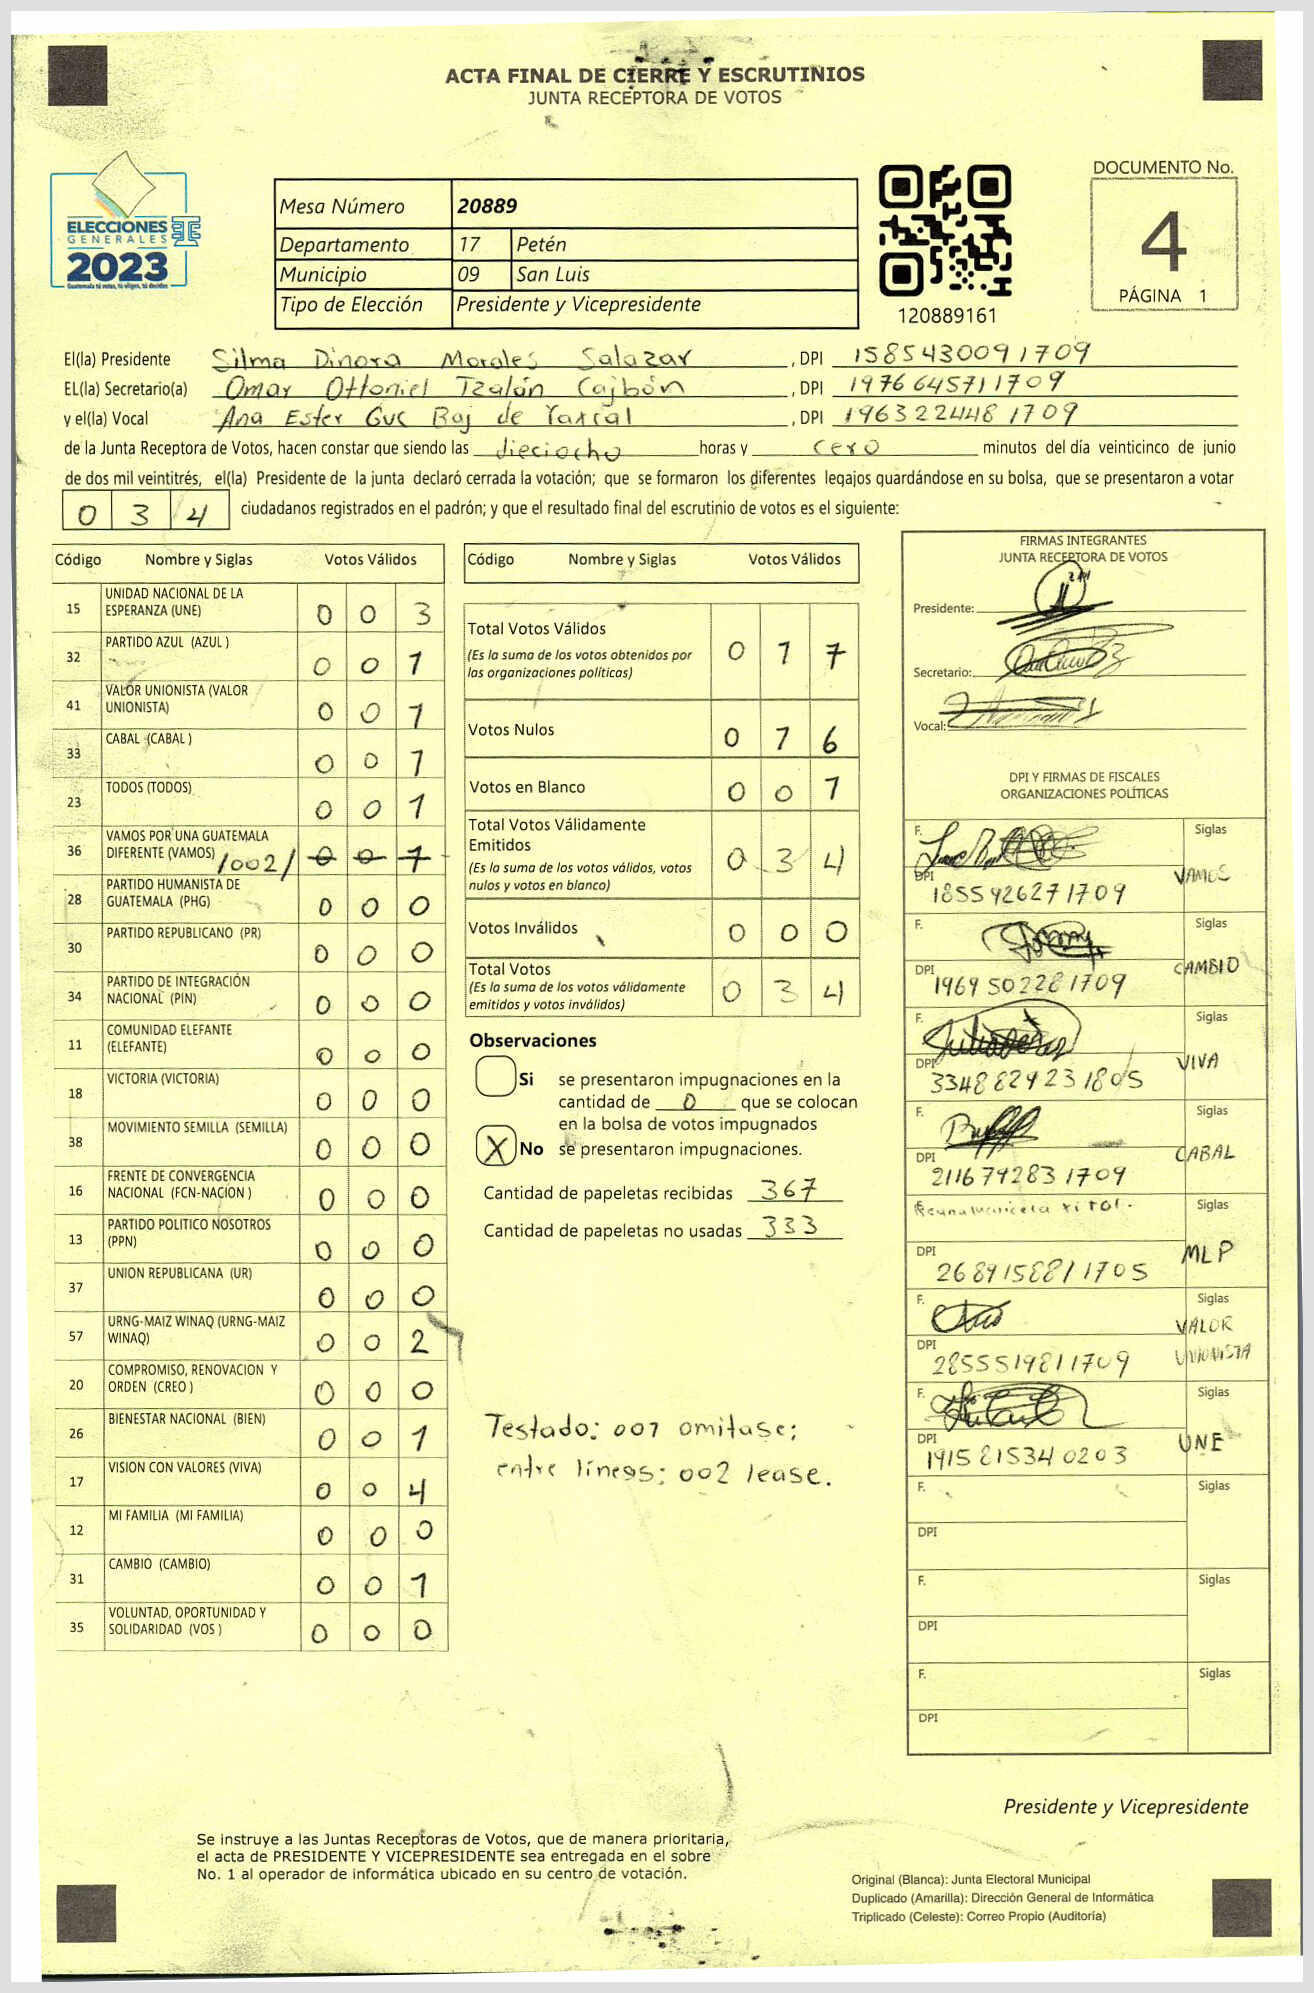 ACTA FINAL DE CIERRE Y ESCRUTINIOS
JUNTA RECEPTORA DE VOTOS
ELECCIONES
GENERALES
2023
Guatemala tú votas, tú eliges, tú decides
Mesa Número 20889
Departamento 17 Petén
Municipio 09 San Luis
Tipo de Elección Presidente y Vicepresidente
120889161
DOCUMENTO No.
4
PÁGINA 1
El(la) Presidente Silma Dinora Morales Salazar, DPI 1585430091709
EL(la) Secretario(a) Omar Ottoniel Tzalán Cajbón, DPI 1976645711709
y el(la) Vocal Ana Ester Guc Baj de Yaxcal, DPI 1963224481709
de la Junta Receptora de Votos, hacen constar que siendo las dieciocho horas y cero minutos del día veinticinco de junio
de dos mil veintitrés, el(la) Presidente de la junta declaró cerrada la votación; que se formaron los diferentes legajos guardándose en su bolsa, que se presentaron a votar
0 3 4 ciudadanos registrados en el padrón; y que el resultado final del escrutinio de votos es el siguiente:
Código Nombre y Siglas Votos Válidos
15 UNIDAD NACIONAL DE LA
ESPERANZA (UNE) 0 0 3
32 PARTIDO AZUL (AZUL ) 0 0 1
41 VALOR UNIONISTA (VALOR
UNIONISTA) 0 0 1
33 CABAL (CABAL ) 0 0 1
23 TODOS (TODOS) 0 0 1
36 VAMOS POR UNA GUATEMALA
DIFERENTE (VAMOS) /002/ 0 0 1
28 PARTIDO HUMANISTA DE
GUATEMALA (PHG) 0 0 0
30 PARTIDO REPUBLICANO (PR) 0 0 0
34 PARTIDO DE INTEGRACIÓN
NACIONAL (PIN) 0 0 0
11 COMUNIDAD ELEFANTE
(ELEFANTE) 0 0 0
18 VICTORIA (VICTORIA) 0 0 0
38 MOVIMIENTO SEMILLA (SEMILLA) 0 0 0
16 FRENTE DE CONVERGENCIA
NACIONAL (FCN-NACION ) 0 0 0
13 PARTIDO POLITICO NOSOTROS
(PPN) 0 0 0
37 UNION REPUBLICANA (UR) 0 0 0
57 URNG-MAIZ WINAQ (URNG-MAIZ
WINAQ) 0 0 2
20 COMPROMISO, RENOVACION Y
ORDEN (CREO ) 0 0 0
26 BIENESTAR NACIONAL (BIEN) 0 0 1
17 VISION CON VALORES (VIVA) 0 0 4
12 MI FAMILIA (MI FAMILIA) 0 0 0
31 CAMBIO (CAMBIO) 0 0 1
35 VOLUNTAD, OPORTUNIDAD Y
SOLIDARIDAD (VOS ) 0 0 0
Código Nombre y Siglas Votos Válidos
Total Votos Válidos
(Es la suma de los votos obtenidos por
las organizaciones políticas) 0 1 7
Votos Nulos 0 1 6
Votos en Blanco 0 0 1
Total Votos Válidamente
Emitidos
(Es la suma de los votos válidos, votos
nulos y votos en blanco) 0 3 4
Votos Inválidos 0 0 0
Total Votos
(Es la suma de los votos válidamente
emitidos y votos inválidos) 0 3 4
Observaciones
Si se presentaron impugnaciones en la
cantidad de 0 que se colocan
en la bolsa de votos impugnados
X No se presentaron impugnaciones.
Cantidad de papeletas recibidas 367
Cantidad de papeletas no usadas 333
Testado: 001 omitase;
entre líneas: 002 lease.
FIRMAS INTEGRANTES
JUNTA RECEPTORA DE VOTOS
Presidente:
Secretario:
Vocal:
DPI Y FIRMAS DE FISCALES
ORGANIZACIONES POLÍTICAS
F. Siglas
DPI 1855926271709 VAMOS
F. Siglas
DPI 1969502281709 CAMBIO
F. Siglas
DPI 3348829231805 VIVA
F. Siglas
DPI 2116792831709 CABAL
Siglas
DPI 2689158811705 MLP
F. Siglas
DPI 2855519811709 VALOR UNIONISTA
F. Siglas
DPI 1915815340203 UNE
F. Siglas
DPI
F. Siglas
DPI
F. Siglas
DPI
Presidente y Vicepresidente
Se instruye a las Juntas Receptoras de Votos, que de manera prioritaria,
el acta de PRESIDENTE Y VICEPRESIDENTE sea entregada en el sobre
No. 1 al operador de informática ubicado en su centro de votación.
Original (Blanca): Junta Electoral Municipal
Duplicado (Amarilla): Dirección General de Informática
Triplicado (Celeste): Correo Propio (Auditoría)